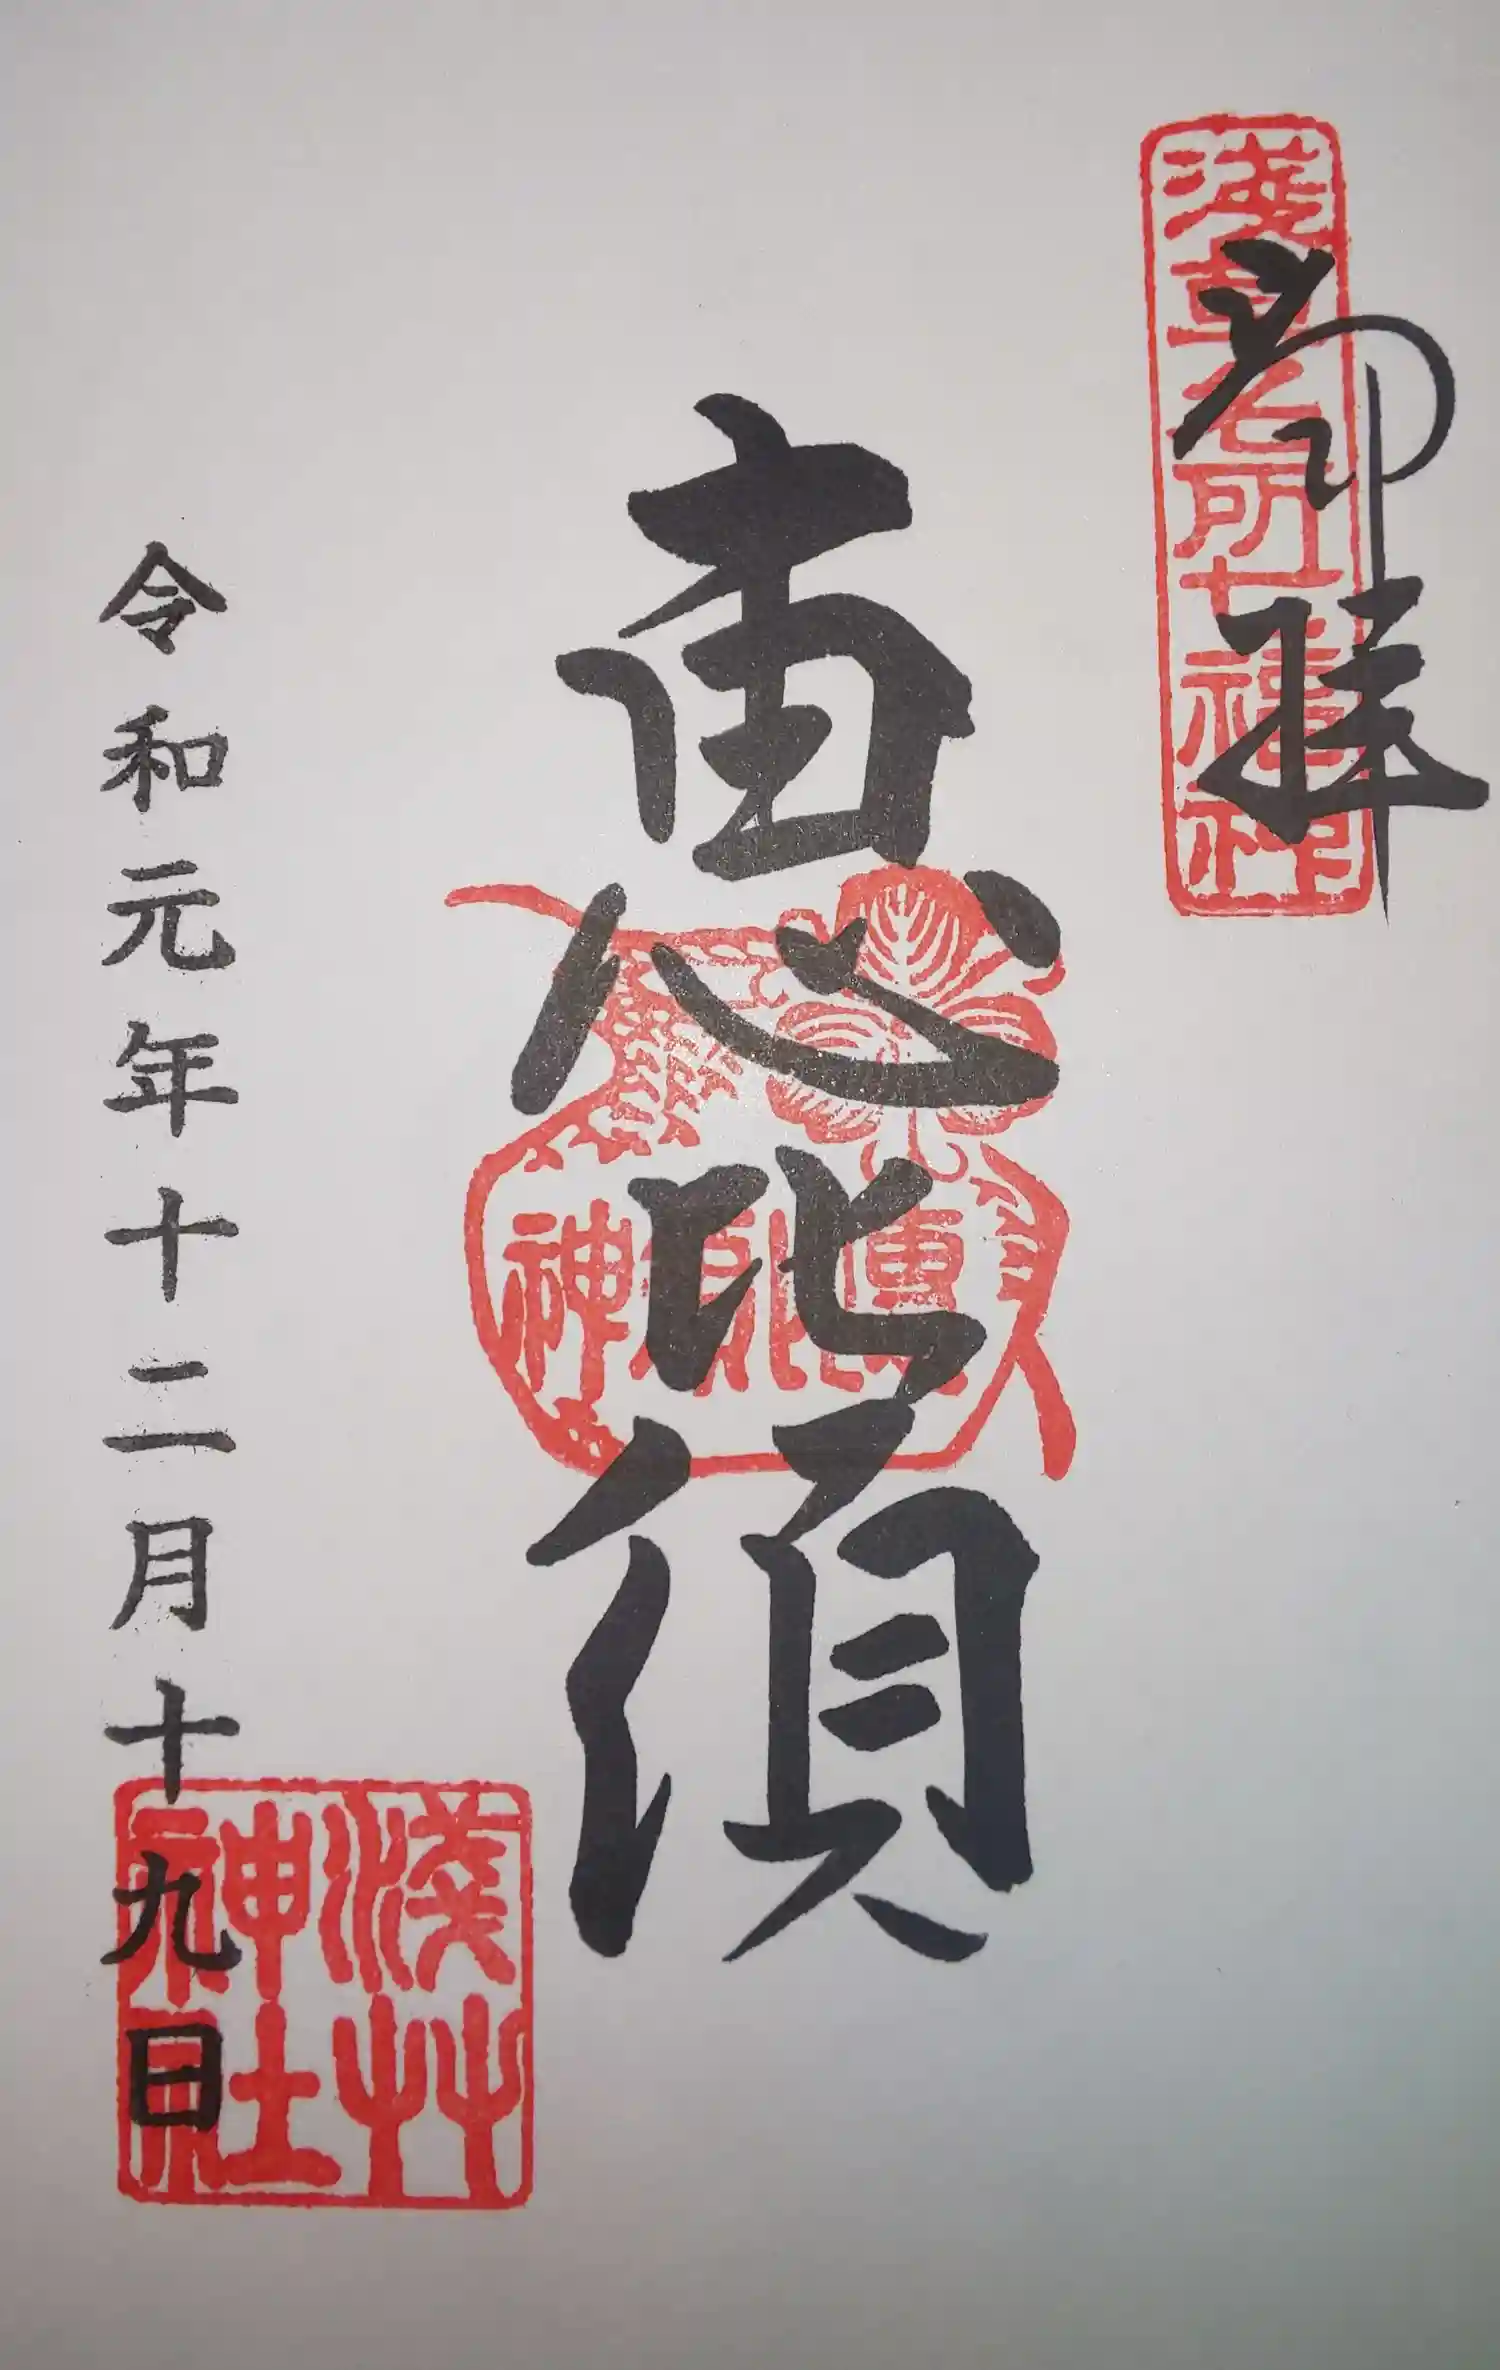 淺草名所七福神
奉拝
恵比須
惠比須神
令和元年十二月十九日
淺草神社